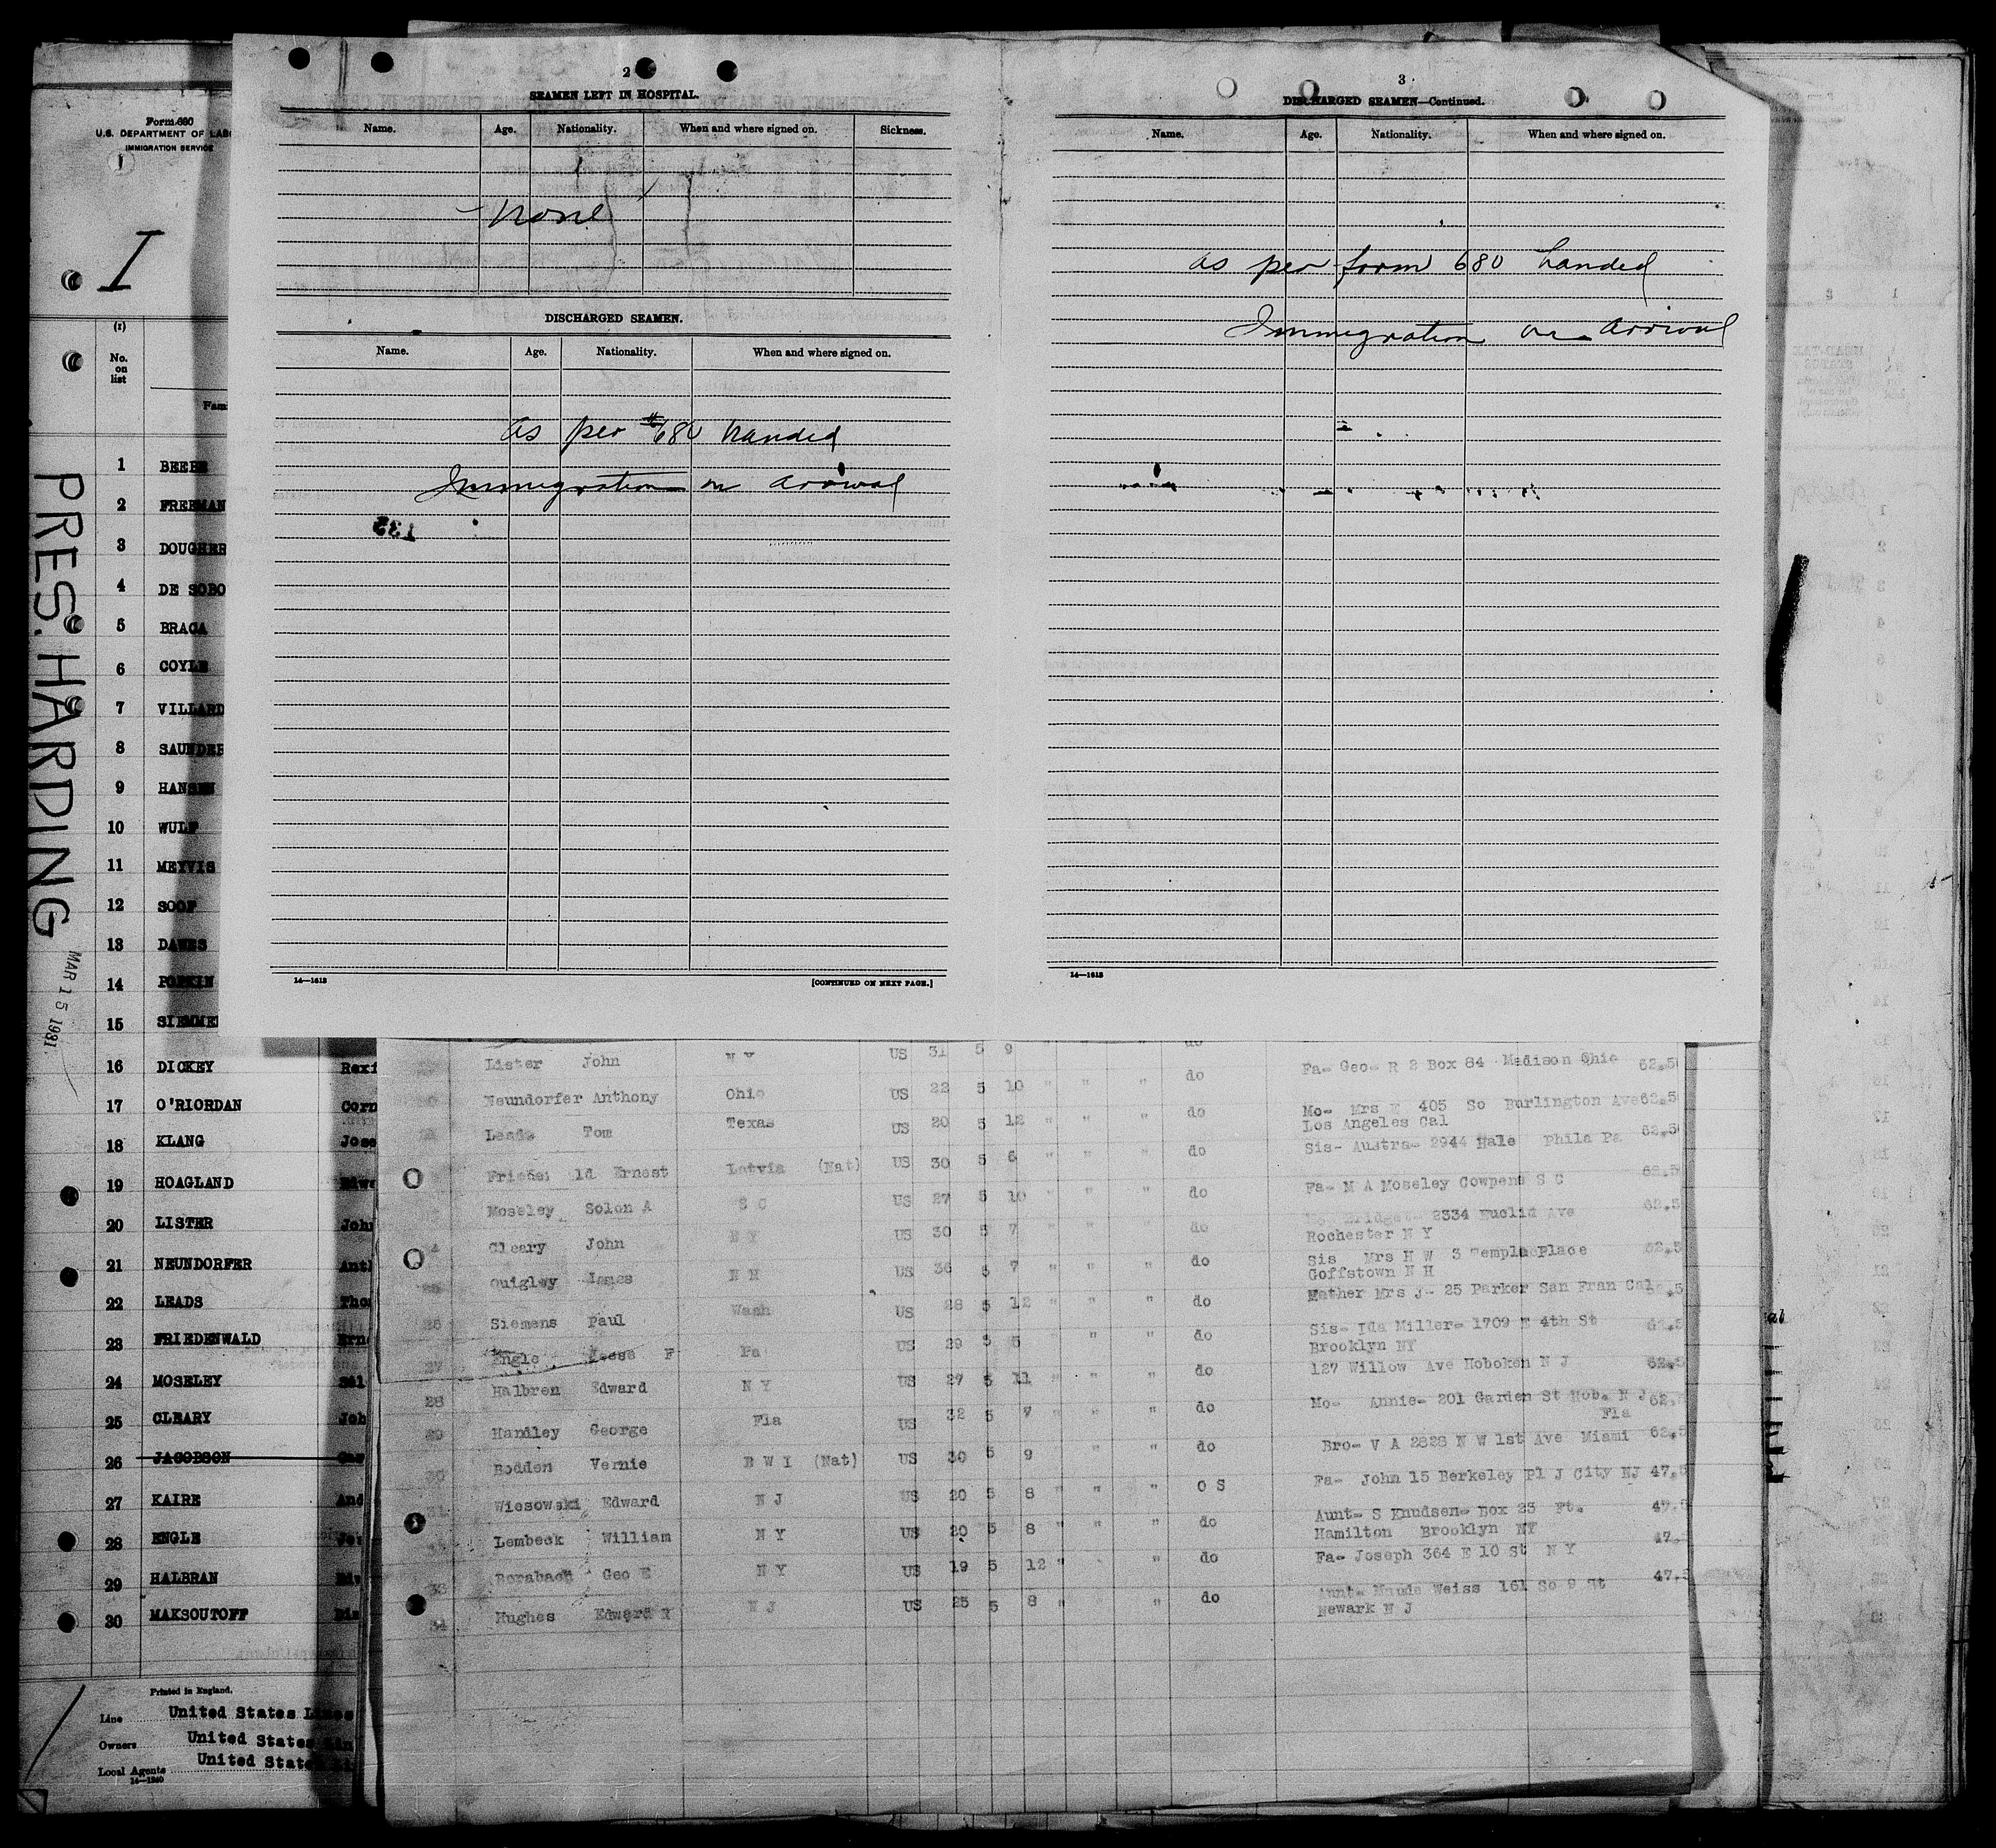 Form 680
U.S. DEPARTMENT OF LAB
IMMIGRATION SERVICE
1
I
(1)
No.
on
list
Fam
PRES. HARDING
MAR 15 1931
1 BEEBE
2 FREEMAN
3 DOUGHER
4 DE SOBO
5 BRAGA
6 COYLE
7 VILLARD
8 SAUNDER
9 HANSEN
10 WULF
11 MEYVIS
12 SOOF
13 DAWES
14 POPKIN
15 SIEMME
16 DICKEY Rexi
17 O'RIORDAN Corn
18 KLANG Jose
19 HOAGLAND Edwa
20 LISTER John
21 NEUNDORFER Anth
22 LEADS Tho
23 FRIEDENWALD Erne
24 MOSELEY Sol
25 CLEARY Joh
26 JACOBSON
27 KAIRE And
28 ENGLE Jes
29 HALBRAN
30 MAKSOUTOFF
Printed in England.
Line United States Lines
Owners United States Lin
Local Agents United States Li
14—1240
2
SEAMEN LEFT IN HOSPITAL.
Name. Age. Nationality. When and where signed on. Sickness.
none
DISCHARGED SEAMEN.
Name. Age. Nationality. When and where signed on.
as per #680 handed
Immigration on arrival
14—1613
[CONTINUED ON NEXT PAGE.]
3
DISCHARGED SEAMEN—Continued.
Name. Age. Nationality. When and where signed on.
as per form 680 handed
Immigration on arrival
14—1613
Lister John N Y US 31 5 9 " " " do Fa- Geo- R 2 Box 84 Madison Ohio 62.5
Neundorfer Anthony Ohio US 22 5 10 " " " do Mo- Mrs E 405 So Burlington Ave 62.5
Los Angeles Cal
Leads Tom Texas US 20 5 12 " " do Sis- Austra- 2944 Hale Phila Pa 62.5
Friedenwald Ernest Latvia (Nat) US 30 5 6 " " " do
Moseley Solon A S C US 27 5 10 " " " do Fa- M A Moseley Cowpens S C 62.5
Cleary John N Y US 30 5 7 " " " do Bridget- 2334 Euclid Ave 62.5
Rochester N Y
25 Quigley James N H US 36 5 7 " " " do Sis Mrs H W 3 Temple Place 62.5
Goffstown N H
26 Siemens Paul Wash US 28 5 12 " " do Mother Mrs J- 25 Parker San Fran Cal .5
27 Engle Jesse F Pa US 29 5 5 " " do Sis- Ida Miller- 1709 E 4th St 62.5
Brooklyn NY
28 Halbren Edward N Y US 27 5 11 " " " do 127 Willow Ave Hoboken N J 62.5
29 Handley George Fla US 32 5 7 " " " do Mo- Annie- 201 Garden St Hob. N J 62.
Fla
30 Bodden Vernie B W I (Nat) US 30 5 9 " " do Bro- V A 2828 N W 1st Ave Miami 62.5
31 Wiesowski Edward N J US 20 5 8 " " " O S Fa- John 15 Berkeley Pl J City NJ 47.5
Lembeck William N Y US 20 5 8 " " " do Aunt- S Knudsen- Box 25 Ft. 47.5
Hamilton Brooklyn NY
33 Rorabach Geo E N Y US 19 5 12 " " " do Fa- Joseph 364 E 10 St N Y 47.
34 Hughes Edward N J US 25 5 8 " " do Aunt- Maude Weiss 161 So 9 St 47.5
Newark N J